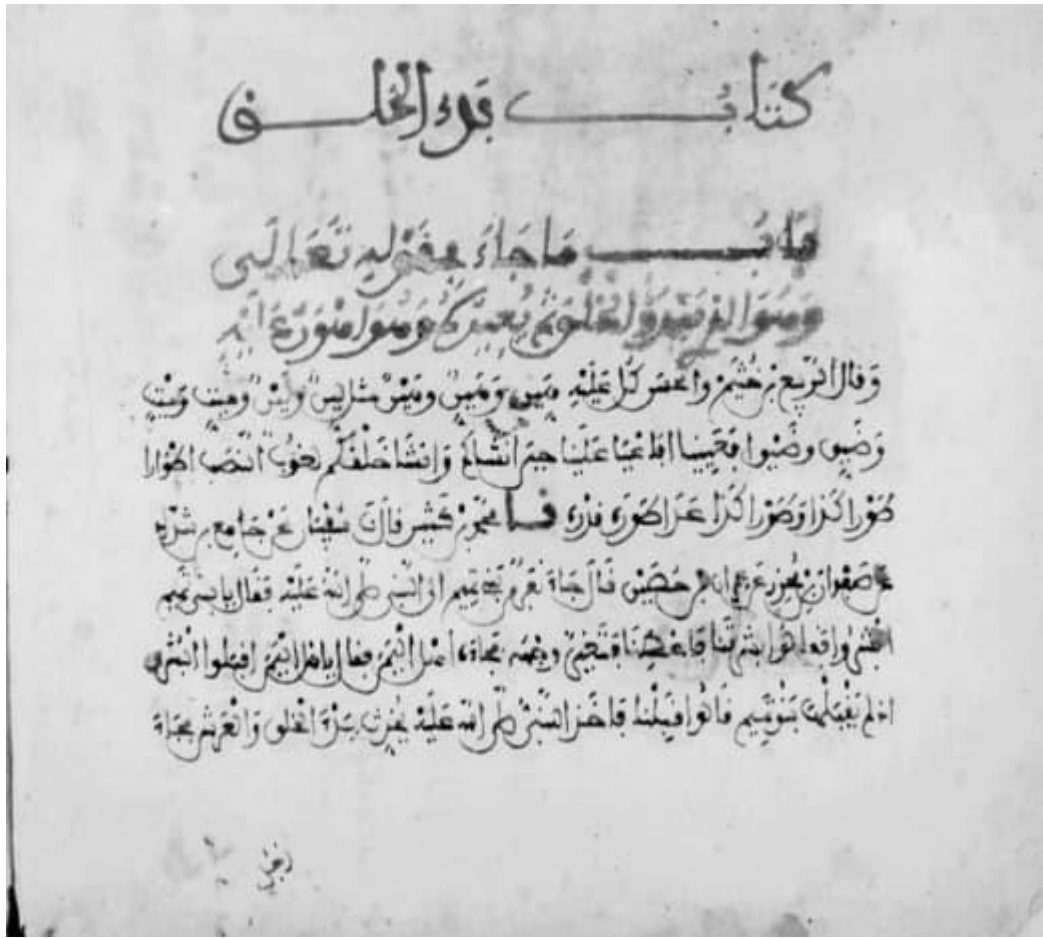 كتاب بدء الخلق
باب ما جاء في قوله تعالى
وهو الذي يبدؤا الخلق ثم يعيده وهو اهون عليه
وقال الربيع بن خثيم والحسن كل عليه هين وهين وهين مثل لين ولين وميت وميت
وضيق وضيق افعيينا افاعيا علينا حين انشاكم وانشا خلقكم لغوب النصب اطوارا
طورا كذا وطورا كذا عدا طوره قدره نا محمد بن كثير قال نا سفيان عن جامع بن شداد
عن صفوان بن محرز عن عمران بن حصين قال جاء نفر من بني تميم الى النبي صلى الله عليه فقال يا بني تميم
ابشروا قالوا بشرتنا فاعطنا فتغير وجهه فجاءه اهل اليمن فقال يا اهل اليمن اقبلوا البشرى
اذ لم يقبلها بنو تميم قالوا قبلنا فاخذ النبي صلى الله عليه يحدث بدء الخلق والعرش فجاء